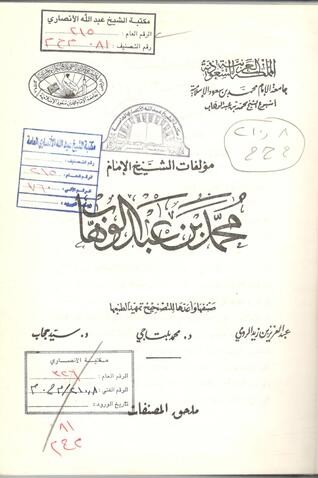 مكتبة الشيخ عبد الله الأنصاري
الرقم العام: ٢١٥
رقم التصنيف: ٢١٣٣ ٠٨١
المملكة العربية السعودية
جامعة الإمام محمد بن سعود الإسلامية
أسبوع الشيخ محمد بن عبد الوهاب
مكتبة الشيخ عبد الله الأنصاري العامة
مؤلفات الشيخ الإمام
محمد بن عبد الوهاب
صنفها وأعدها للتصحيح تمهيدا لطبعها
عبد العزيز بن زيد الرومي
د. محمد بلتاجي
د. سيد حجاب
مكتبة الانصاري
الرقم العام: ٣٢٦
الرقم الفني:
تاريخ الورود:
ملحق المصنفات